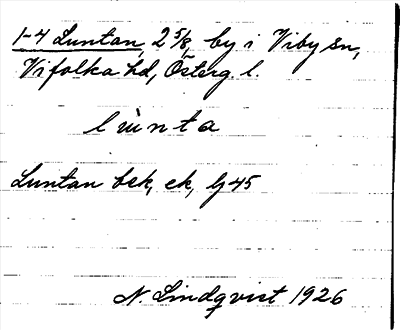 1-4 Luntan, 2 5/8, by i Viby sn,
Vifolka hd, Österg. l.
lùnta
Luntan bek, ek, Gj 45
N. Lindqvist 1926